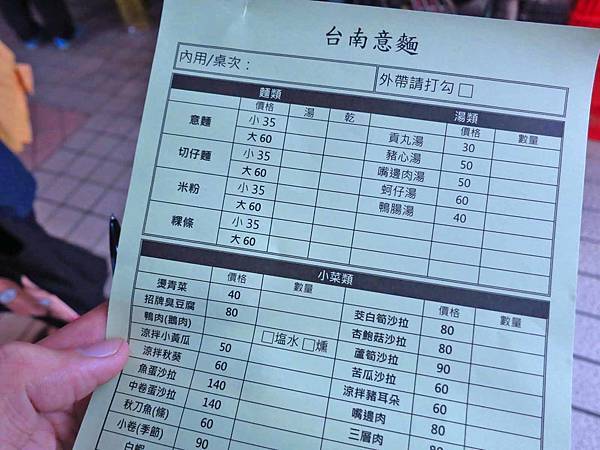 台南意麵
內用/桌次：
外帶請打勾 □
麵類
價格 湯 乾
意麵 小 35
大 60
切仔麵 小 35
大 60
米粉 小 35
大 60
粿條 小 35
大 60
湯類
價格 數量
貢丸湯 30
豬心湯 50
嘴邊肉湯 50
蚵仔湯 60
鴨腸湯 40
小菜類
價格 數量
燙青菜 40
招牌臭豆腐 80
鴨肉(鵝肉) □塩水 □燻
涼拌小黃瓜 50
涼拌秋葵 60
魚蛋沙拉 140
中卷蛋沙拉 140
秋刀魚(條) 60
小卷(季節) 90
白蝦
價格 數量
茭白筍沙拉 80
杏鮑菇沙拉 80
蘆筍沙拉 90
苦瓜沙拉 60
涼拌豬耳朵 60
嘴邊肉 80
三層肉 80